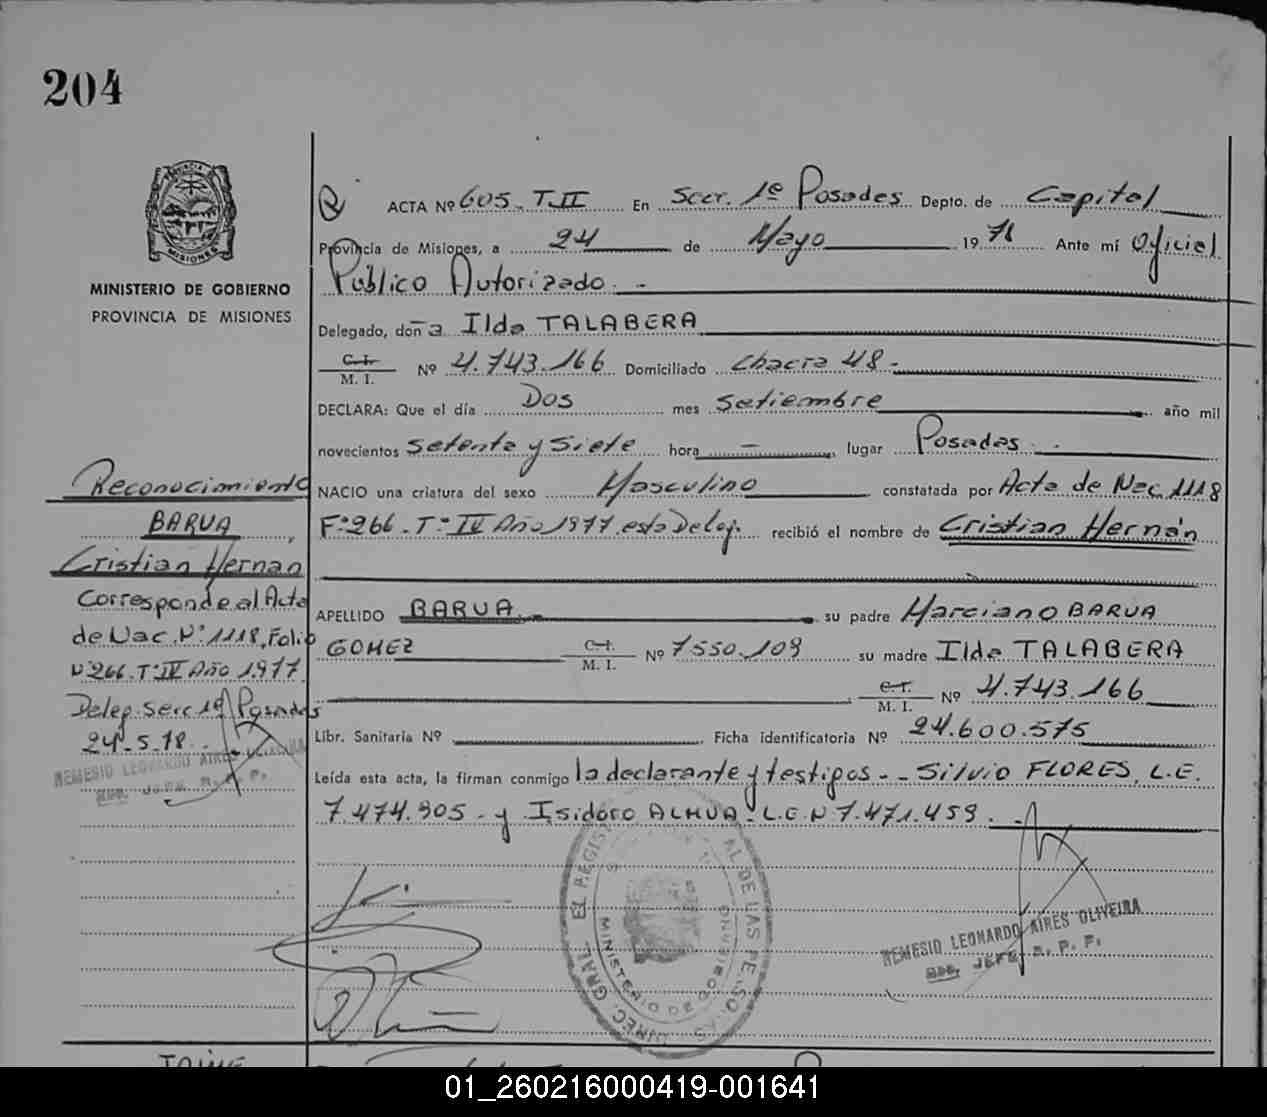 204
MINISTERIO DE GOBIERNO
PROVINCIA DE MISIONES
Reconocimiento
BARUA
Cristian Hernan
Corresponde al Acta
de Nac. Nº 1118, Folio
Nº 266. Tº IV Año 1977.
Deleg. Secc 1ª Posadas
24-5-78
NEMESIO LEONARDO AIRES OLIVEIRA
JEFE R. P. P.
ACTA Nº 605. T.II En Secc. 1ª Posadas Depto. de Capital
Provincia de Misiones, a 24 de Mayo 19 78 Ante mí Oficial
Público Autorizado. -
Delegado, doña Ilda TALABERA
C.I. M. I. Nº 4.743.166 Domiciliado Chacra 48-
DECLARA: Que el día Dos mes Setiembre año mil
novecientos setenta y siete hora — lugar Posadas.
NACIO una criatura del sexo Masculino constatada por Acta de Nac. 1118
Fº 266. Tº IV Año 1977. esta Deleg. recibió el nombre de Cristian Hernán
APELLIDO BARUA su padre Marciano BARUA
GOMEZ C.I. M. I. Nº 7550.109 su madre Ilda TALABERA
C.I. M. I. Nº 4.743.166
Libr. Sanitaria Nº Ficha identificatoria Nº 24.600.575
Leída esta acta, la firman conmigo la declarante y testigos - Silvio FLORES, L.E.
7.474.905 - y Isidoro ALMUA - L.E Nº 7.471.459. -
DIREC. GRAL. EL REGIS AL DE LAS PERSONAS
MINISTERIO DE GOBIERNO
NEMESIO LEONARDO AIRES OLIVEIRA
JEFE R. P. P.
01_260216000419-001641